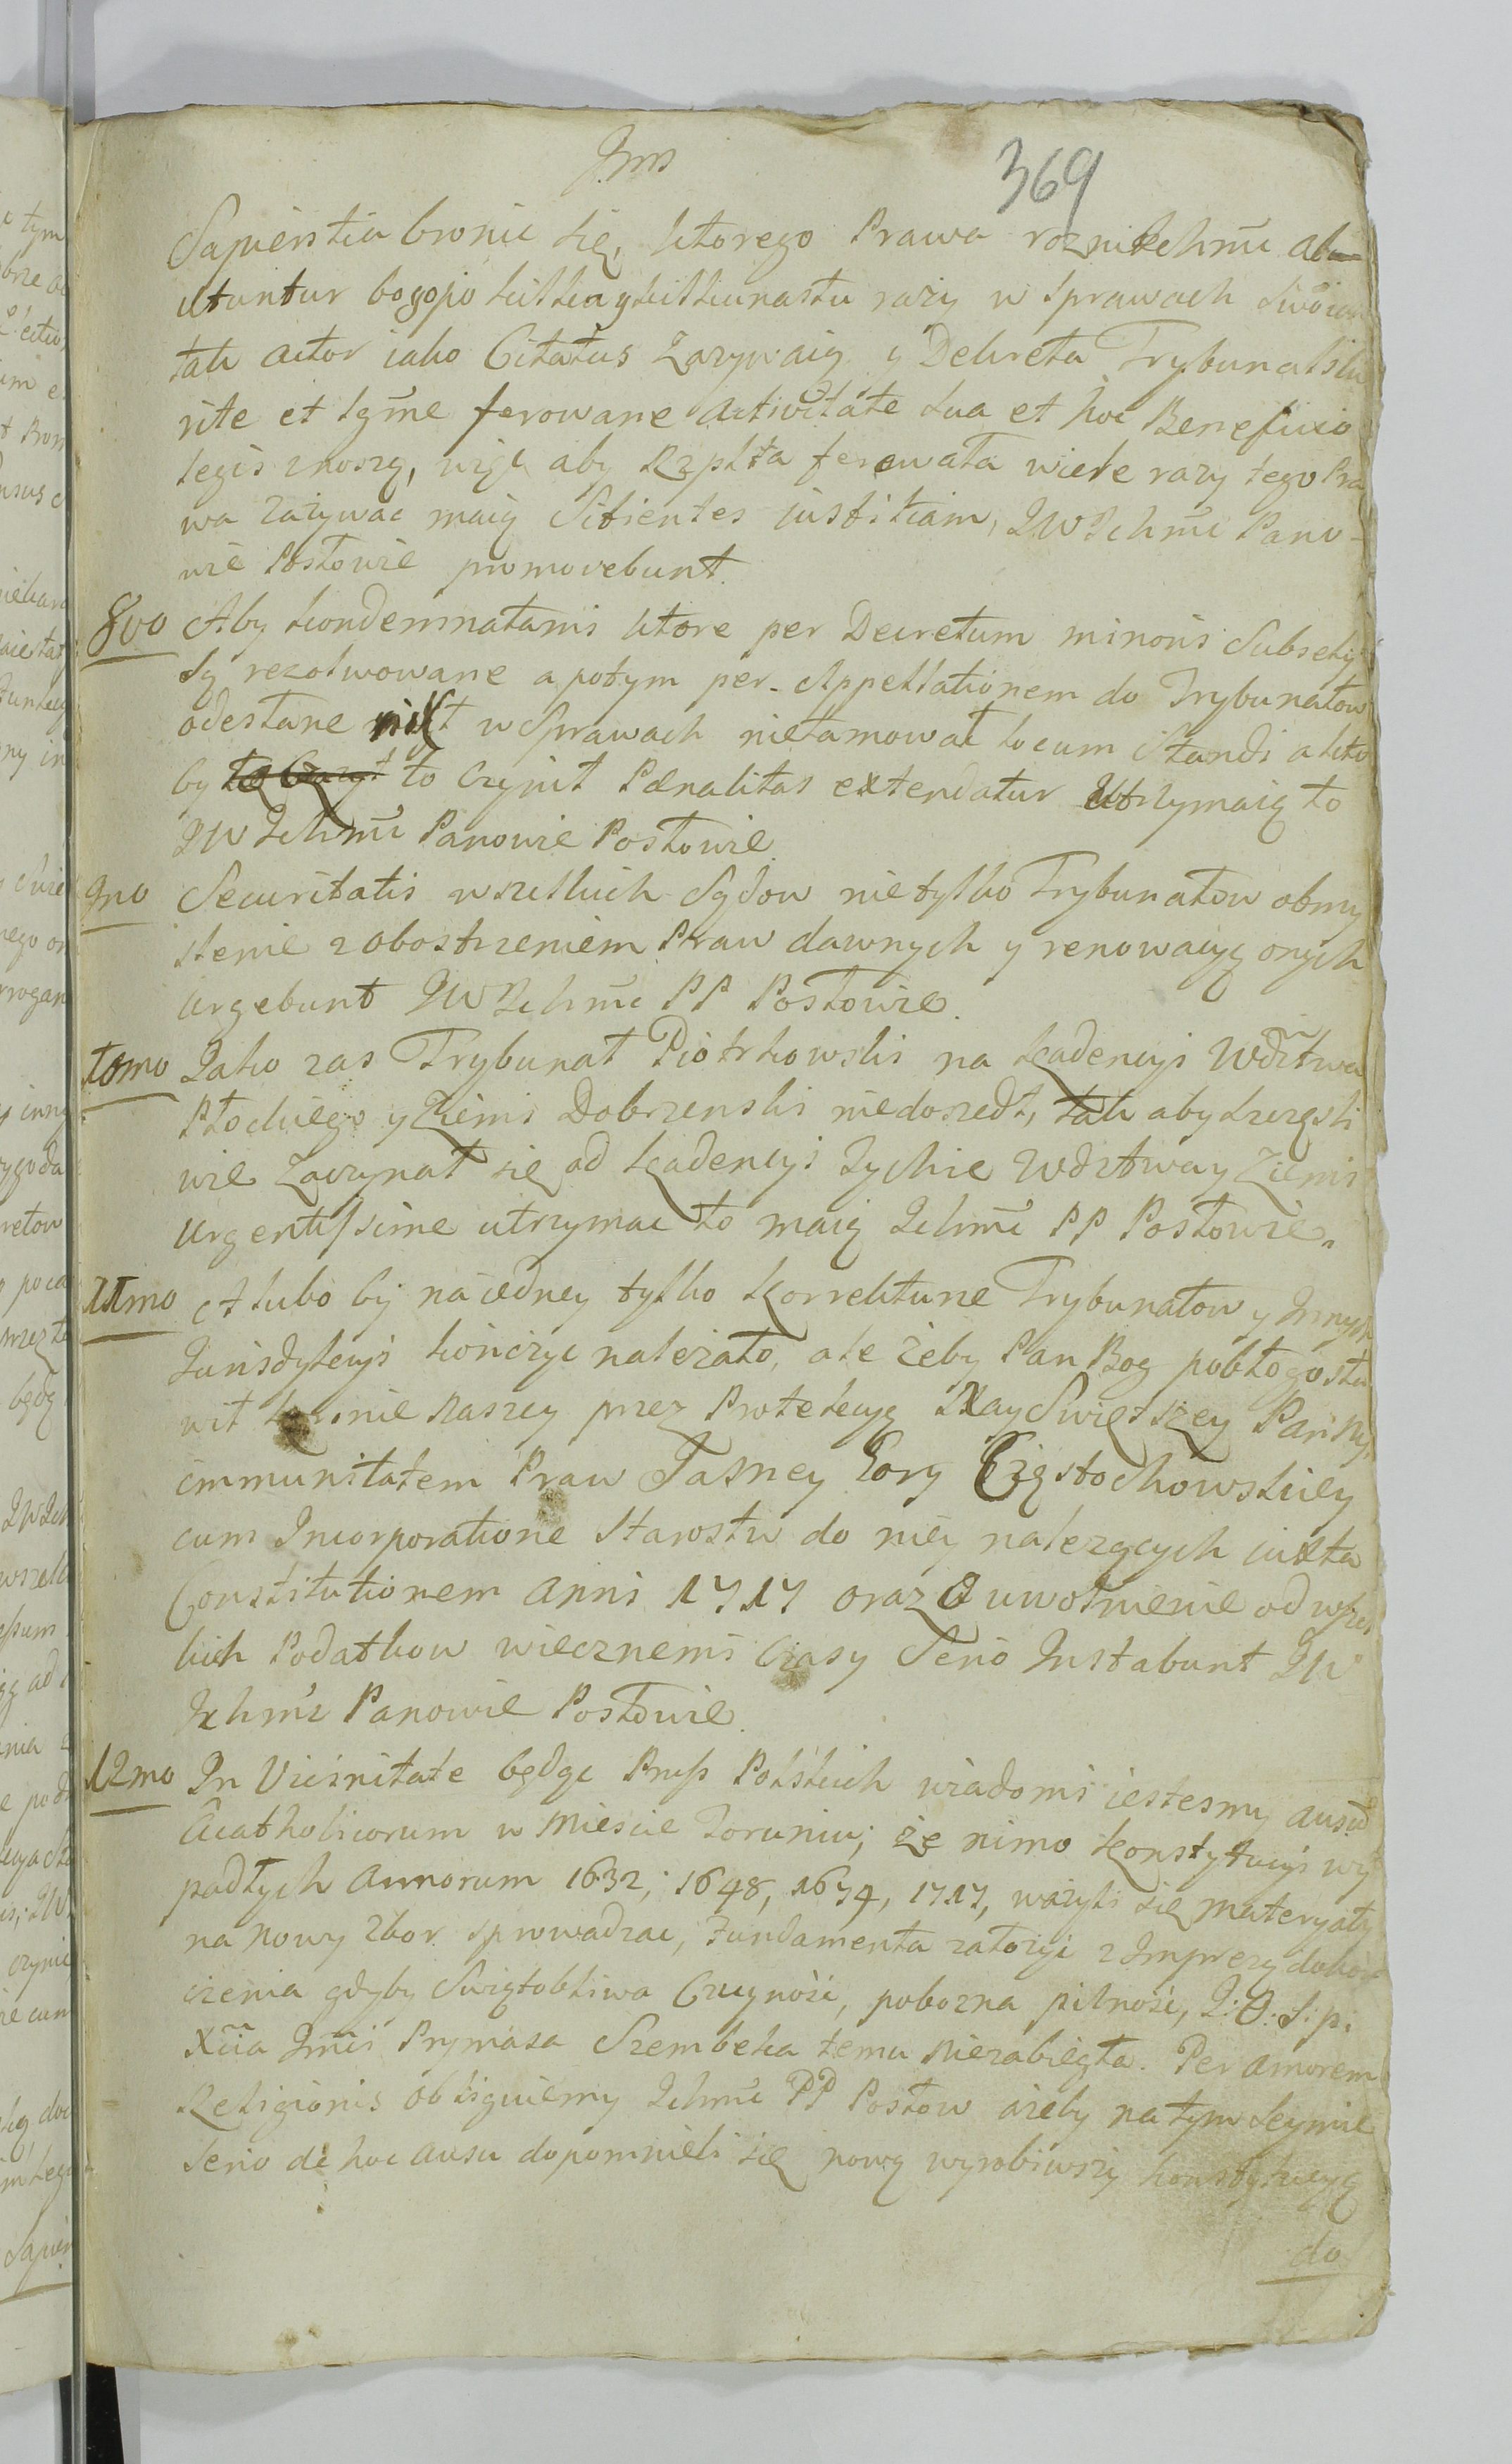 Jms
369
Sapientia bronic się, ktorego Prawa roznikchmć abu
utuntur bo go po kilka y kilkunastu razy w sprawach swoich
tak actor iako Citatus zazywaią y Dekreta Trybunalsku
rite et lgme ferowane activitate sua et hoc Beneficio
legis znoszą, więc aby Rzplta ferowała wiele razy tego Pra
wa zazywac maią Sitientes iustitiam, JWJchmć Pano-
wie Posłowie promovebunt.
8vo Aby kondemnatami ktore per Decretum minoris Subselij
są rezolwowane a potym per Appellationem do Trybunałow
odesłane nikt w Sprawach nietamował locum Standi a kto
by to czynił Pœnalitas extendatur utrzymaią to
JWJchmć Panowie Posłowie
9no Securitatis wszelkich Sądow nietylko Trybunałow obmy
slenie z obostrzeniem Praw dawnych y renowacyą onych
urgebunt JWJchmć PP Posłowie.
10mo Jako zas Trybunał Piotrkowski na kadencyi Wdztwa
Płockiego y Ziemi Dobrzenski niedoszedł, tak aby szczęsli
wie zaczynał się od kadencyi tychze Wdztwa y Ziemi
urgentissime utrzymac to maią Jchmć PP Posłowie.
11mo A lubo by na iedney tylko korrekturze Trybunałow y Innych
Jurisdykcyi kończyc nalezało, ale żeby Pan Bog pobłogosła
wił naszey przez Protekcyą Nayswiętszey Panny,
immunitatem Praw Jasney Gory Częstochowskiey
cum Incorporatione Starostw do niey nalezących iuxta
Constitutionem anni 1717 oraz uwolnienie od wszel
kich Podatkow wiecznemi czasy Serio Instabunt JW
Jchmć Panowie Posłowie.
12mo In Vicinitate będąc Pruss Polskich wiadomi iestesmy ausũ
Acatholicorum w Miescie Toruniu; że mimo konstytucyi wy
padłych Annorum 1632, 1648, 1674, 1717, ważyli się materyały
na nowy zbor sprowadzac, fundamenta załozyc z Imprezy dokoń
czenia gdyby Swiątobliwa Czuynośc, pobozna pilnośc, J:O:S:p:
Xcia Jmci Prymasa Szembeka temu niezabiegła. Per amorem
Religionis obliguiemy Jchmć PP Posłow azeby na tym Seymie
serio de hoc ausu dopomnieli się nową wyrobiwszy konstytucyą
do